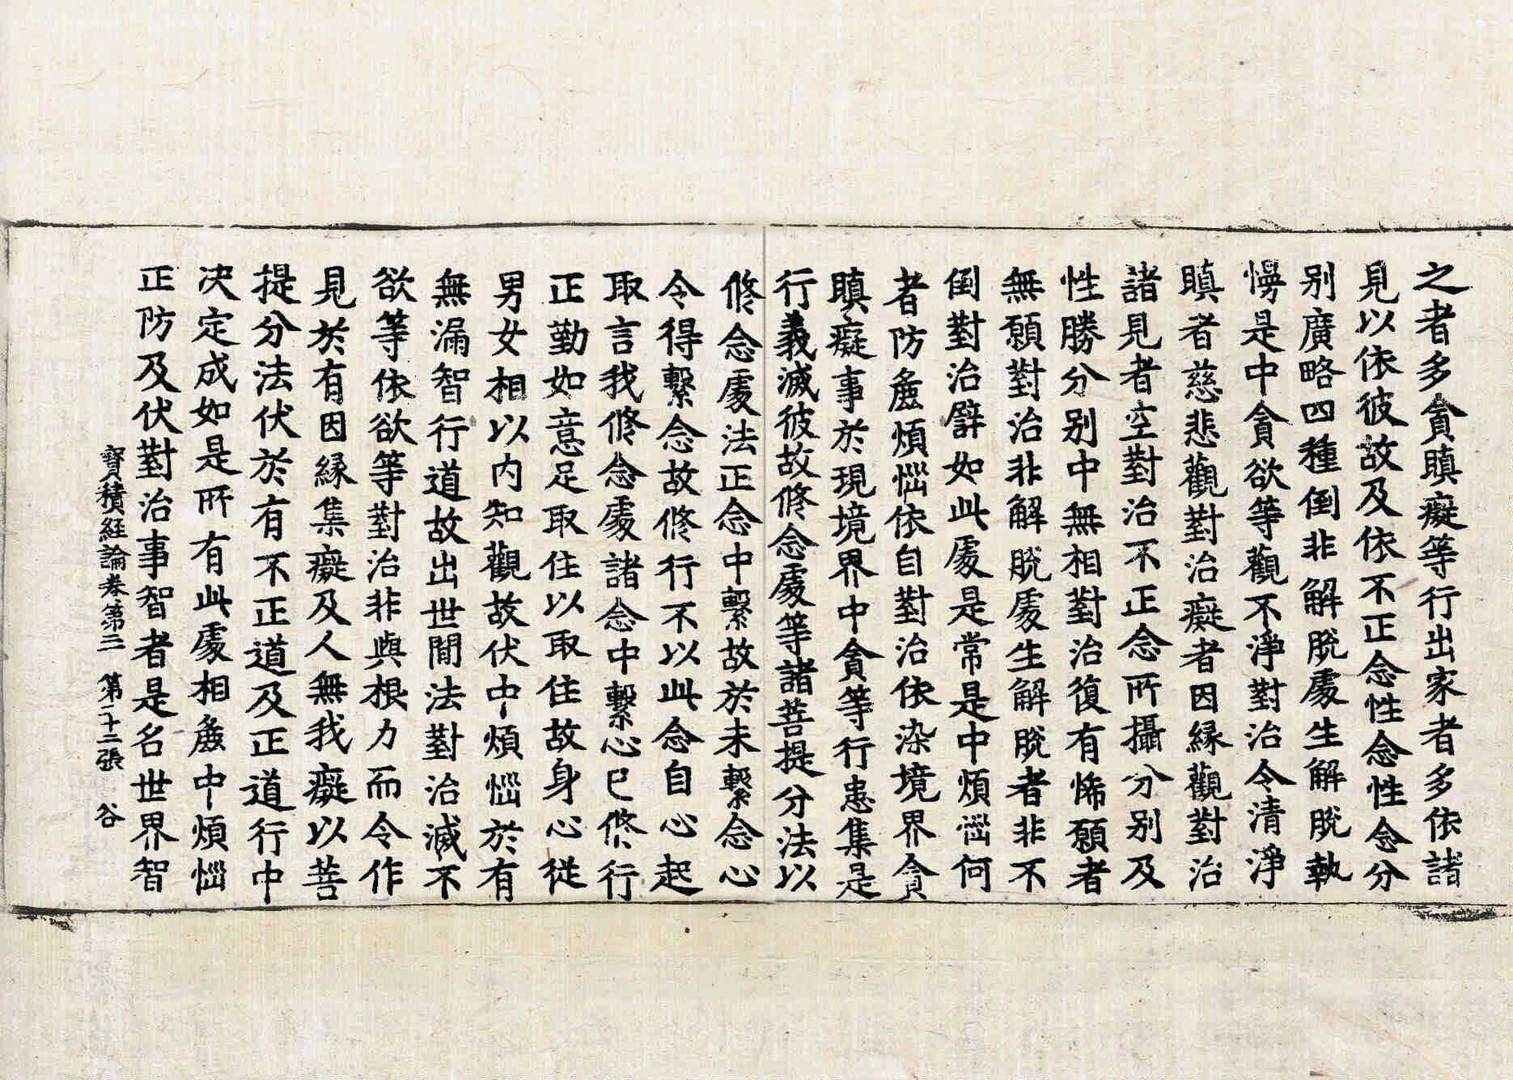 之者多貪瞋癡等行出家者多依諸
見以依彼故及依不正念性念性念分
别廣略四種倒非解脫處生解脫執
慢是中貪欲等觀不淨對治令清淨
瞋者慈悲觀對治癡者因緣觀對治
諸見者空對治不正念所攝分别及
性勝分别中無相對治復有悕願者
無願對治非解脫處生解脫者非不
倒對治譬如此處是常是中煩惱何
者防麁煩惱依自對治依染境界貪
瞋癡事於現境界中貪等行恚集是
行義滅彼故修念處等諸菩提分法以
修念處法正念中繫故於未繫念心
令得繫念故修行不以此念自心起
取言我修念處諸念中繫心已修行
正勤如意足取住以取住故身心從
男女相以内知觀故伏中煩惱於有
無漏智行道故出世間法對治滅不
欲等依欲等對治非與根力而令作
見於有因緣集癡及人無我癡以菩
提分法伏於有不正道及正道行中
决定成如是所有此處相麁中煩惱
正防及伏對治事智者是名世界智
寶積經論卷第三 第二十二張 谷